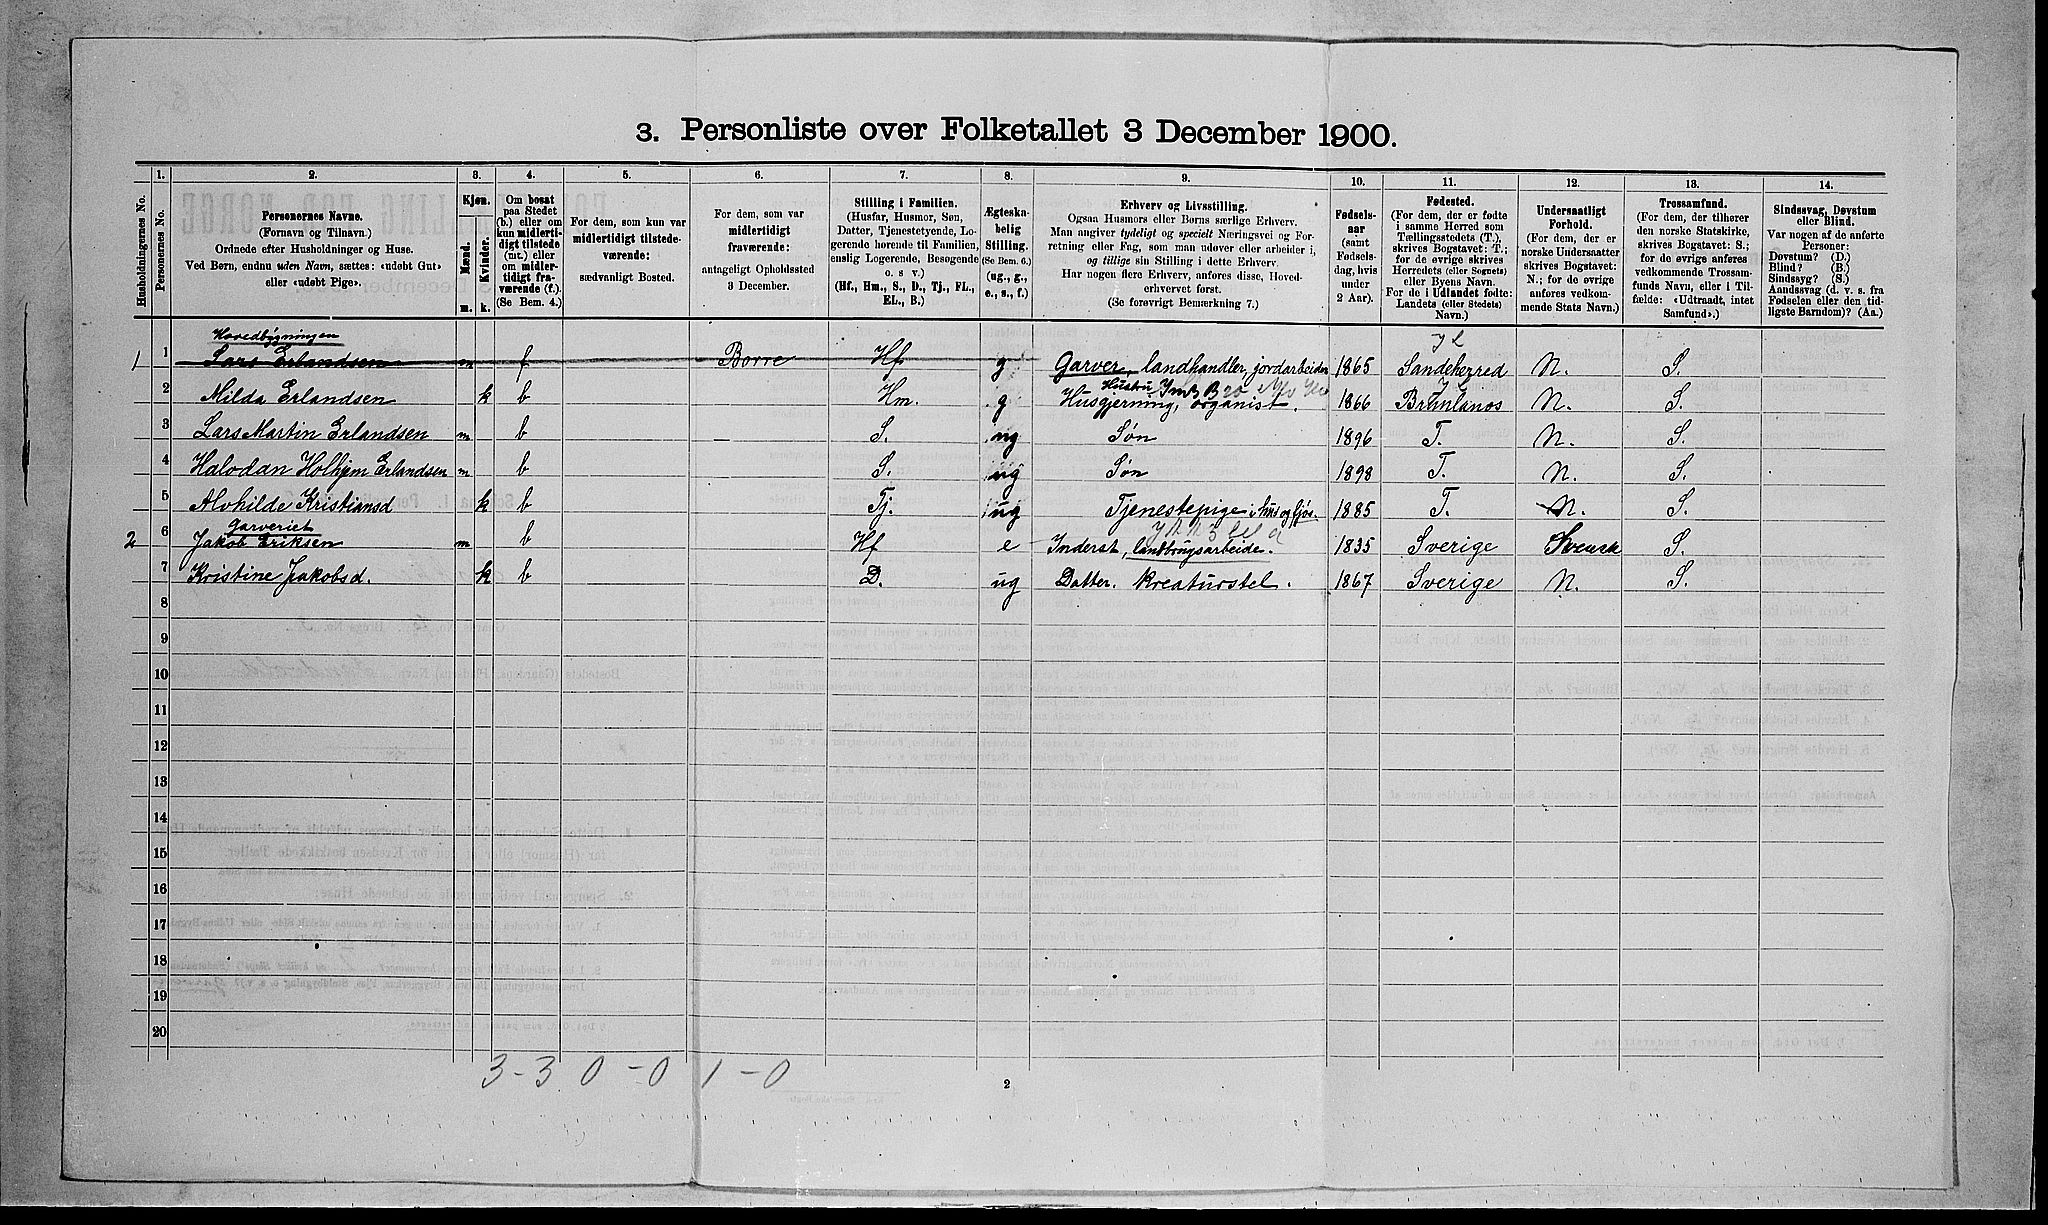 3. Personliste over Folketallet 3 December 1900.
Husholdningernes No.
1. Personernes No.
2. Personernes Navne.
(Fornavn og Tilnavn.)
Ordnede efter Husholdninger og Huse.
Ved Børn, endnu uden Navn, sættes: «udøbt Gut»
eller «udøbt Pige».
3. Kjøn.
Mænd. m.
Kvinder. k.
4. Om bosat
paa Stedet
(b.) eller om
kun midlerti-
digt tilstede
(mt.) eller
om midler-
tidigt fra-
værende (f.)
(Se Bem. 4.)
5. For dem, som kun var
midlertidigt tilstede-
værende:
sædvanligt Bosted.
6. For dem, som var
midlertidigt
fraværende:
antageligt Opholdssted
3 December.
7. Stilling i Familien.
(Husfar, Husmor, Søn,
Datter, Tjenestetyende, Lo-
gerende hørende til Familien,
enslig Logerende, Besøgende
o. s v.)
(Hf., Hm., S., D., Tj., FL.,
EL., B.)
8. Ægteska-
belig
Stilling.
(Se Bem. 6.)
(ug., g.,
e., s., f.)
9. Erhverv og Livsstilling.
Ogsaa Husmors eller Børns særlige Erhverv.
Man angiver tydeligt og specielt Næringsvei og For-
retning eller Fag, som man udøver eller arbeider i,
og tillige sin Stilling i dette Erhverv.
Har nogen flere Erhverv, anføres disse, Hoved-
erhvervet først.
(Se forøvrigt Bemærkning 7.)
10. Fødsels-
aar
(samt
Fødsels-
dag, hvis
under
2 Aar).
11. Fødested.
(For dem, der er fødte
i samme Herred som
Tællingsstedets (T.),
skrives Bogstavet: T.;
for de øvrige skrives
Herredets (eller Sognets)
eller Byens Navn.
For de i Udlandet fødte:
Landets (eller Stedets)
Navn.)
12. Undersaatligt
Forhold.
(For dem, der er
norske Undersaatter
skrives Bogstavet:
N.; for de øvrige
anføres vedkom-
mende Stats Navn.)
13. Trossamfund.
(For dem, der tilhører
den norske Statskirke,
skrives Bogstavet: S.;
for de øvrige anføres
vedkommende Trossam-
funds Navn, eller i Til-
fælde: «Udtraadt, intet
Samfund».)
14. Sindssvag, Døvstum
eller Blind.
Var nogen af de anførte
Personer:
Døvstum? (D.)
Blind? (B.)
Sindssyg? (S.)
Aandssvag (d. v. s. fra
Fødselen eller den tid-
ligste Barndom)? (Aa.)
Hovedbygningen
1 1 Lars Erlandsen m f Borre Hf g Garver, landhandler, jordarbeider 1865 Sandeherred N. S.
Hustru
2 Milda Erlandsen k b Hm. g Husgjerning, organist. 1866 Brunlanøs N. S.
3 Lars Martin Erlandsen m b S. ug Søn 1896 T. N. S.
4 Halvdan Holhjem Erlandsen m b S. ug Søn 1898 T. N. S.
5 Alvhilde Kristiansd k b Tj. ug Tjenestepige i hus og fjøs. 1885 T. N. S.
Garveriet
2 6 Jakob Eriksen m b Hf e Inderst, landbrugsarbeide. 1835 Sverige Svensk S.
7 Kristine Jakobsd. k b D. ug Datter. kreaturstel. 1867 Sverige N. S.
8
9
10
11
12
13
14
15
16
17
18
19
20
3-3 0-0 1-0
2